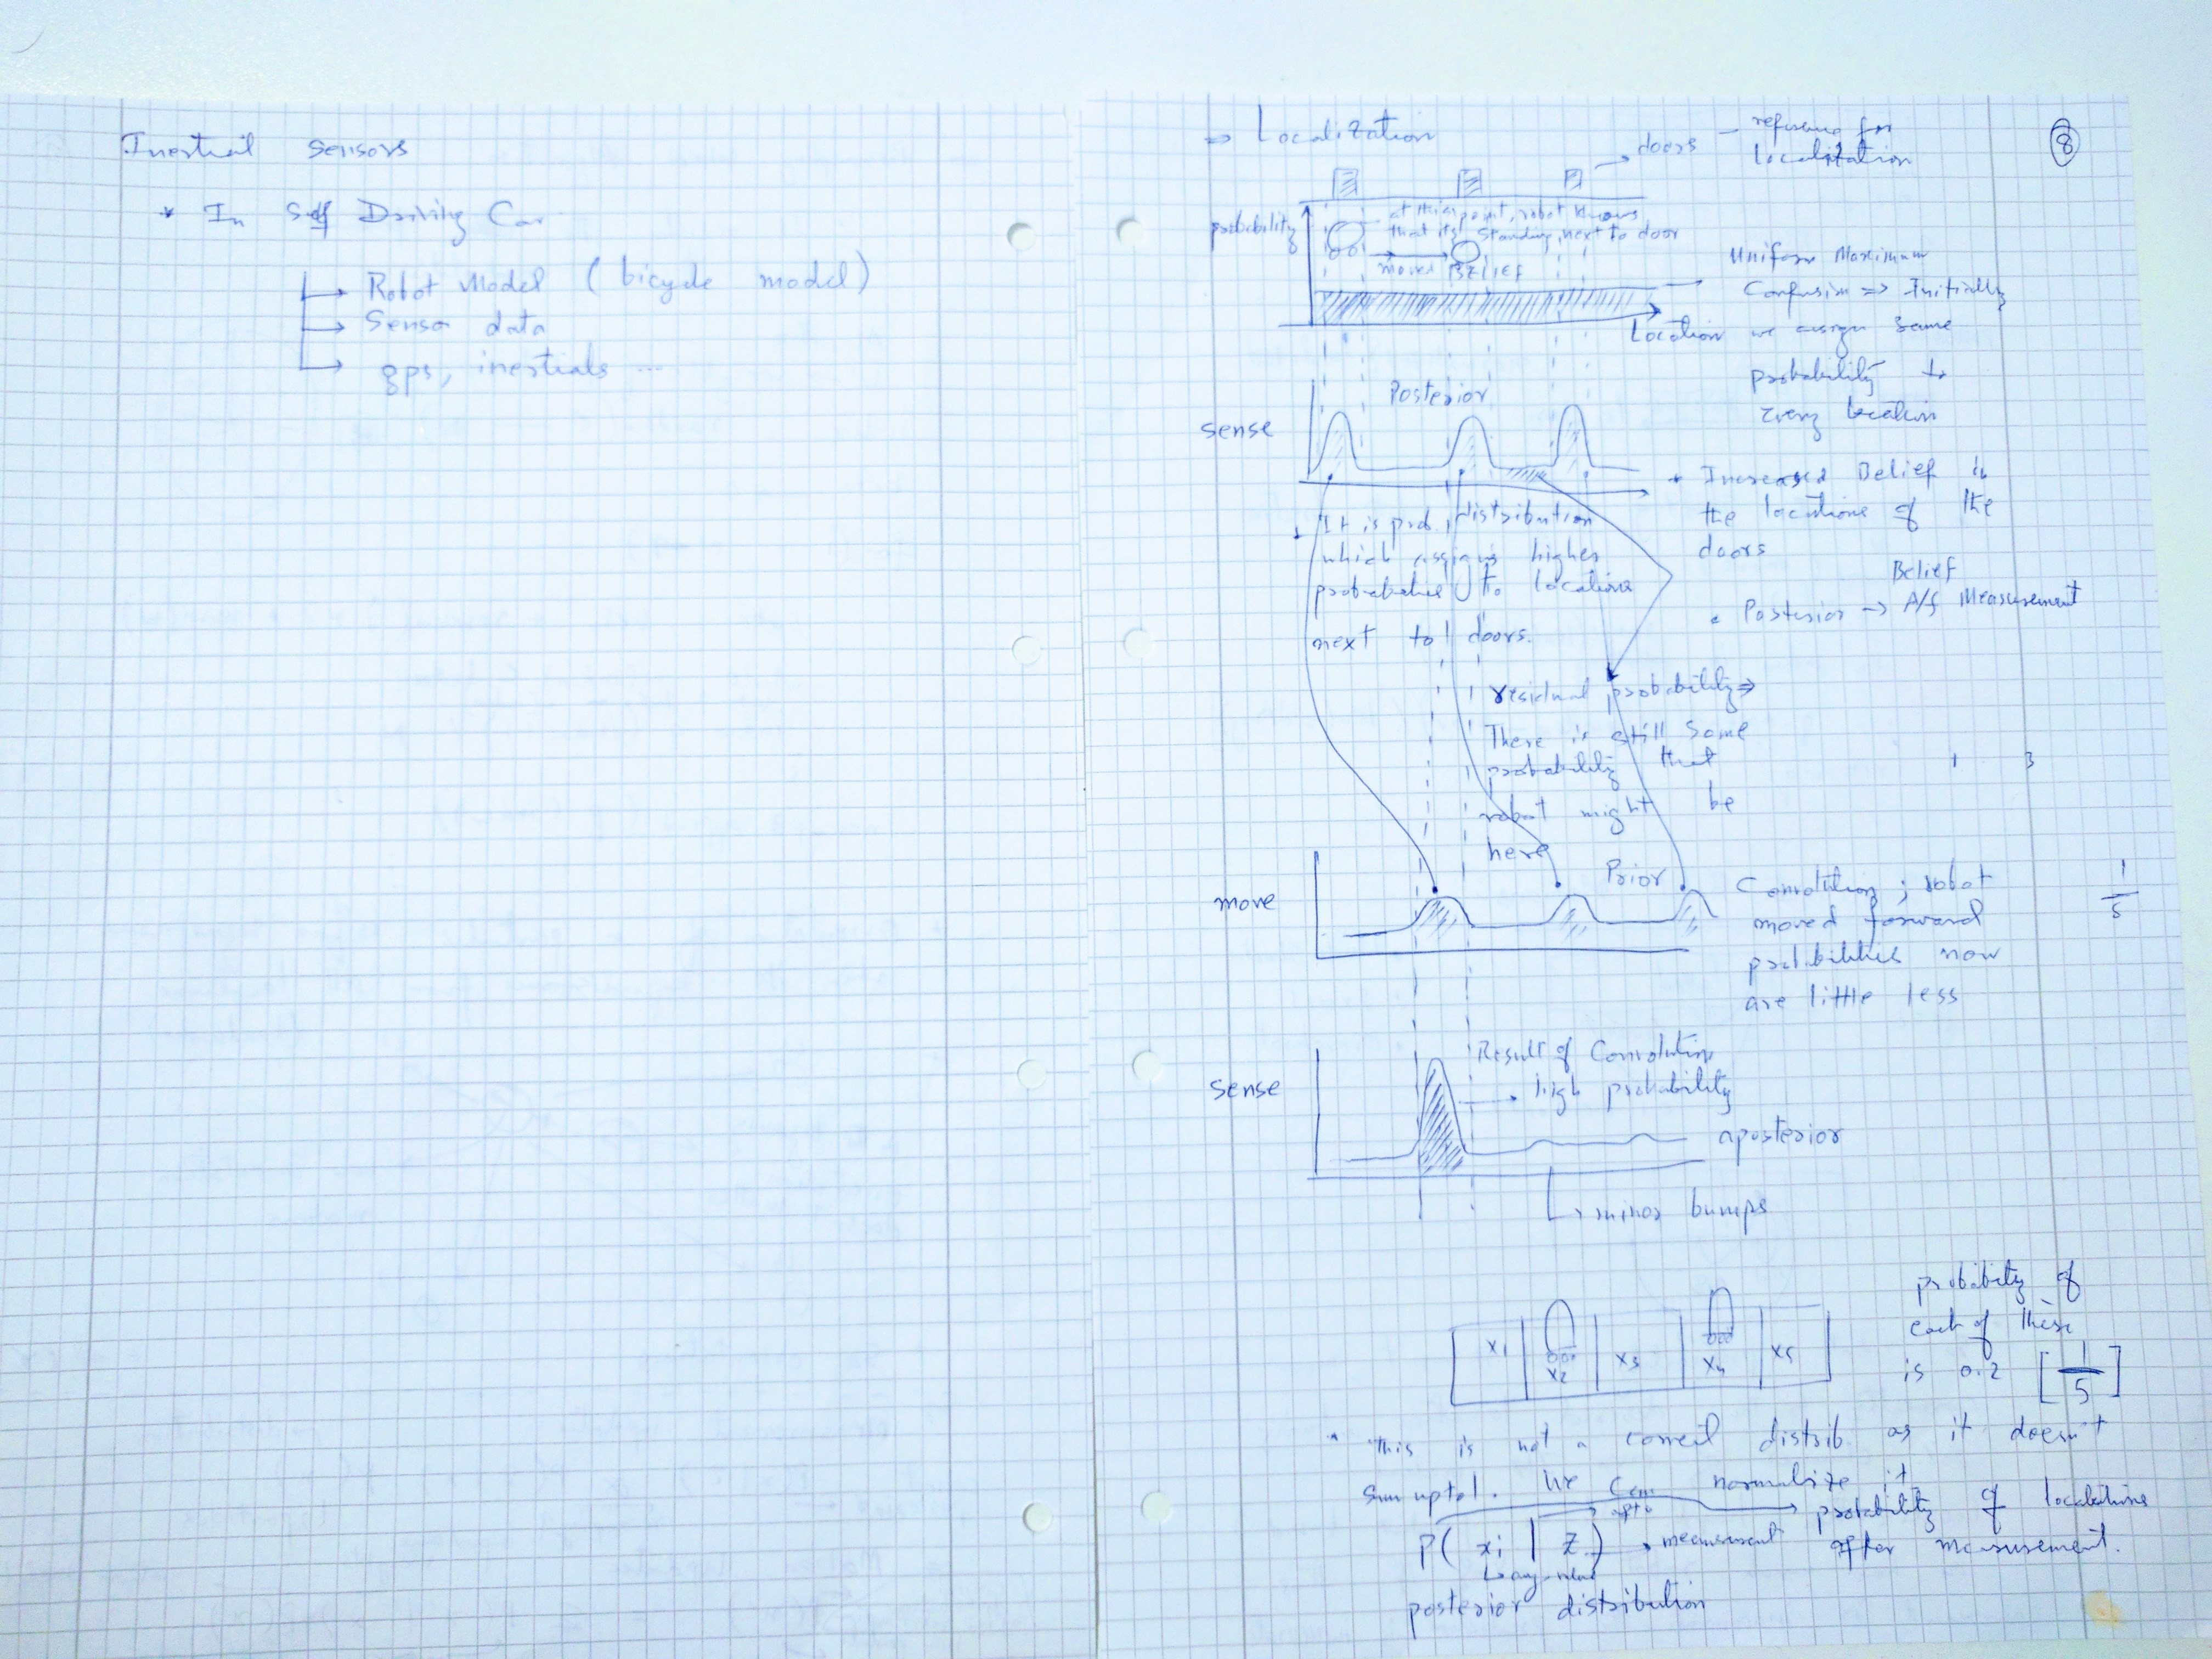 Inertial sensors
* In Self Driving Car
Robot Model ( bicycle model )
Sensor data
gps, inertials ...
⇒ Localization
doors - reference for
localization
8
probability
at this point, robot knows
that its standing next to door
moved BELIEF
Uniform Maximum
Confusion => Initially
Location we assign same
probability to
every location
Posterior
sense
* Increased Belief in
the locations of the
doors
It is prob. distribution
which assigns higher
to locations
next to doors.
Belief
Posterior → A/f Measurement
residual probability ⇒
There is still some
probability that
robot might be
here
1 3
Prior
move
Convolution ; robot
moved forward
probabilities now
are little less
1
5
sense
Result of Convolution
high probability
aposterior
minor bumps
x1 x2 x3 x4 x5
probability of
each of these
is 0.2 [1/5]
* This is not a correct distrib. as it doesn't
sum upto 1. We can normalize it
P( xi | Z ) → measurement
probability of locations
after measurement.
posterior distribution